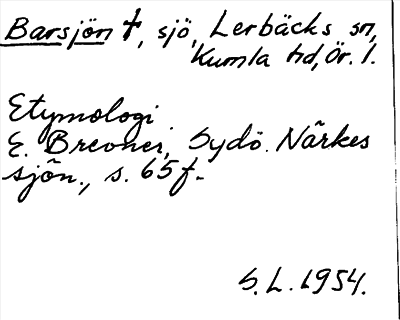 Barsjön †, sjö, Lerbäcks sn,
Kumla hd, Ör. l.
Etymologi
E. Brevner, Sydö. Närkes
sjön., s. 65 f.
S. L. 1954.